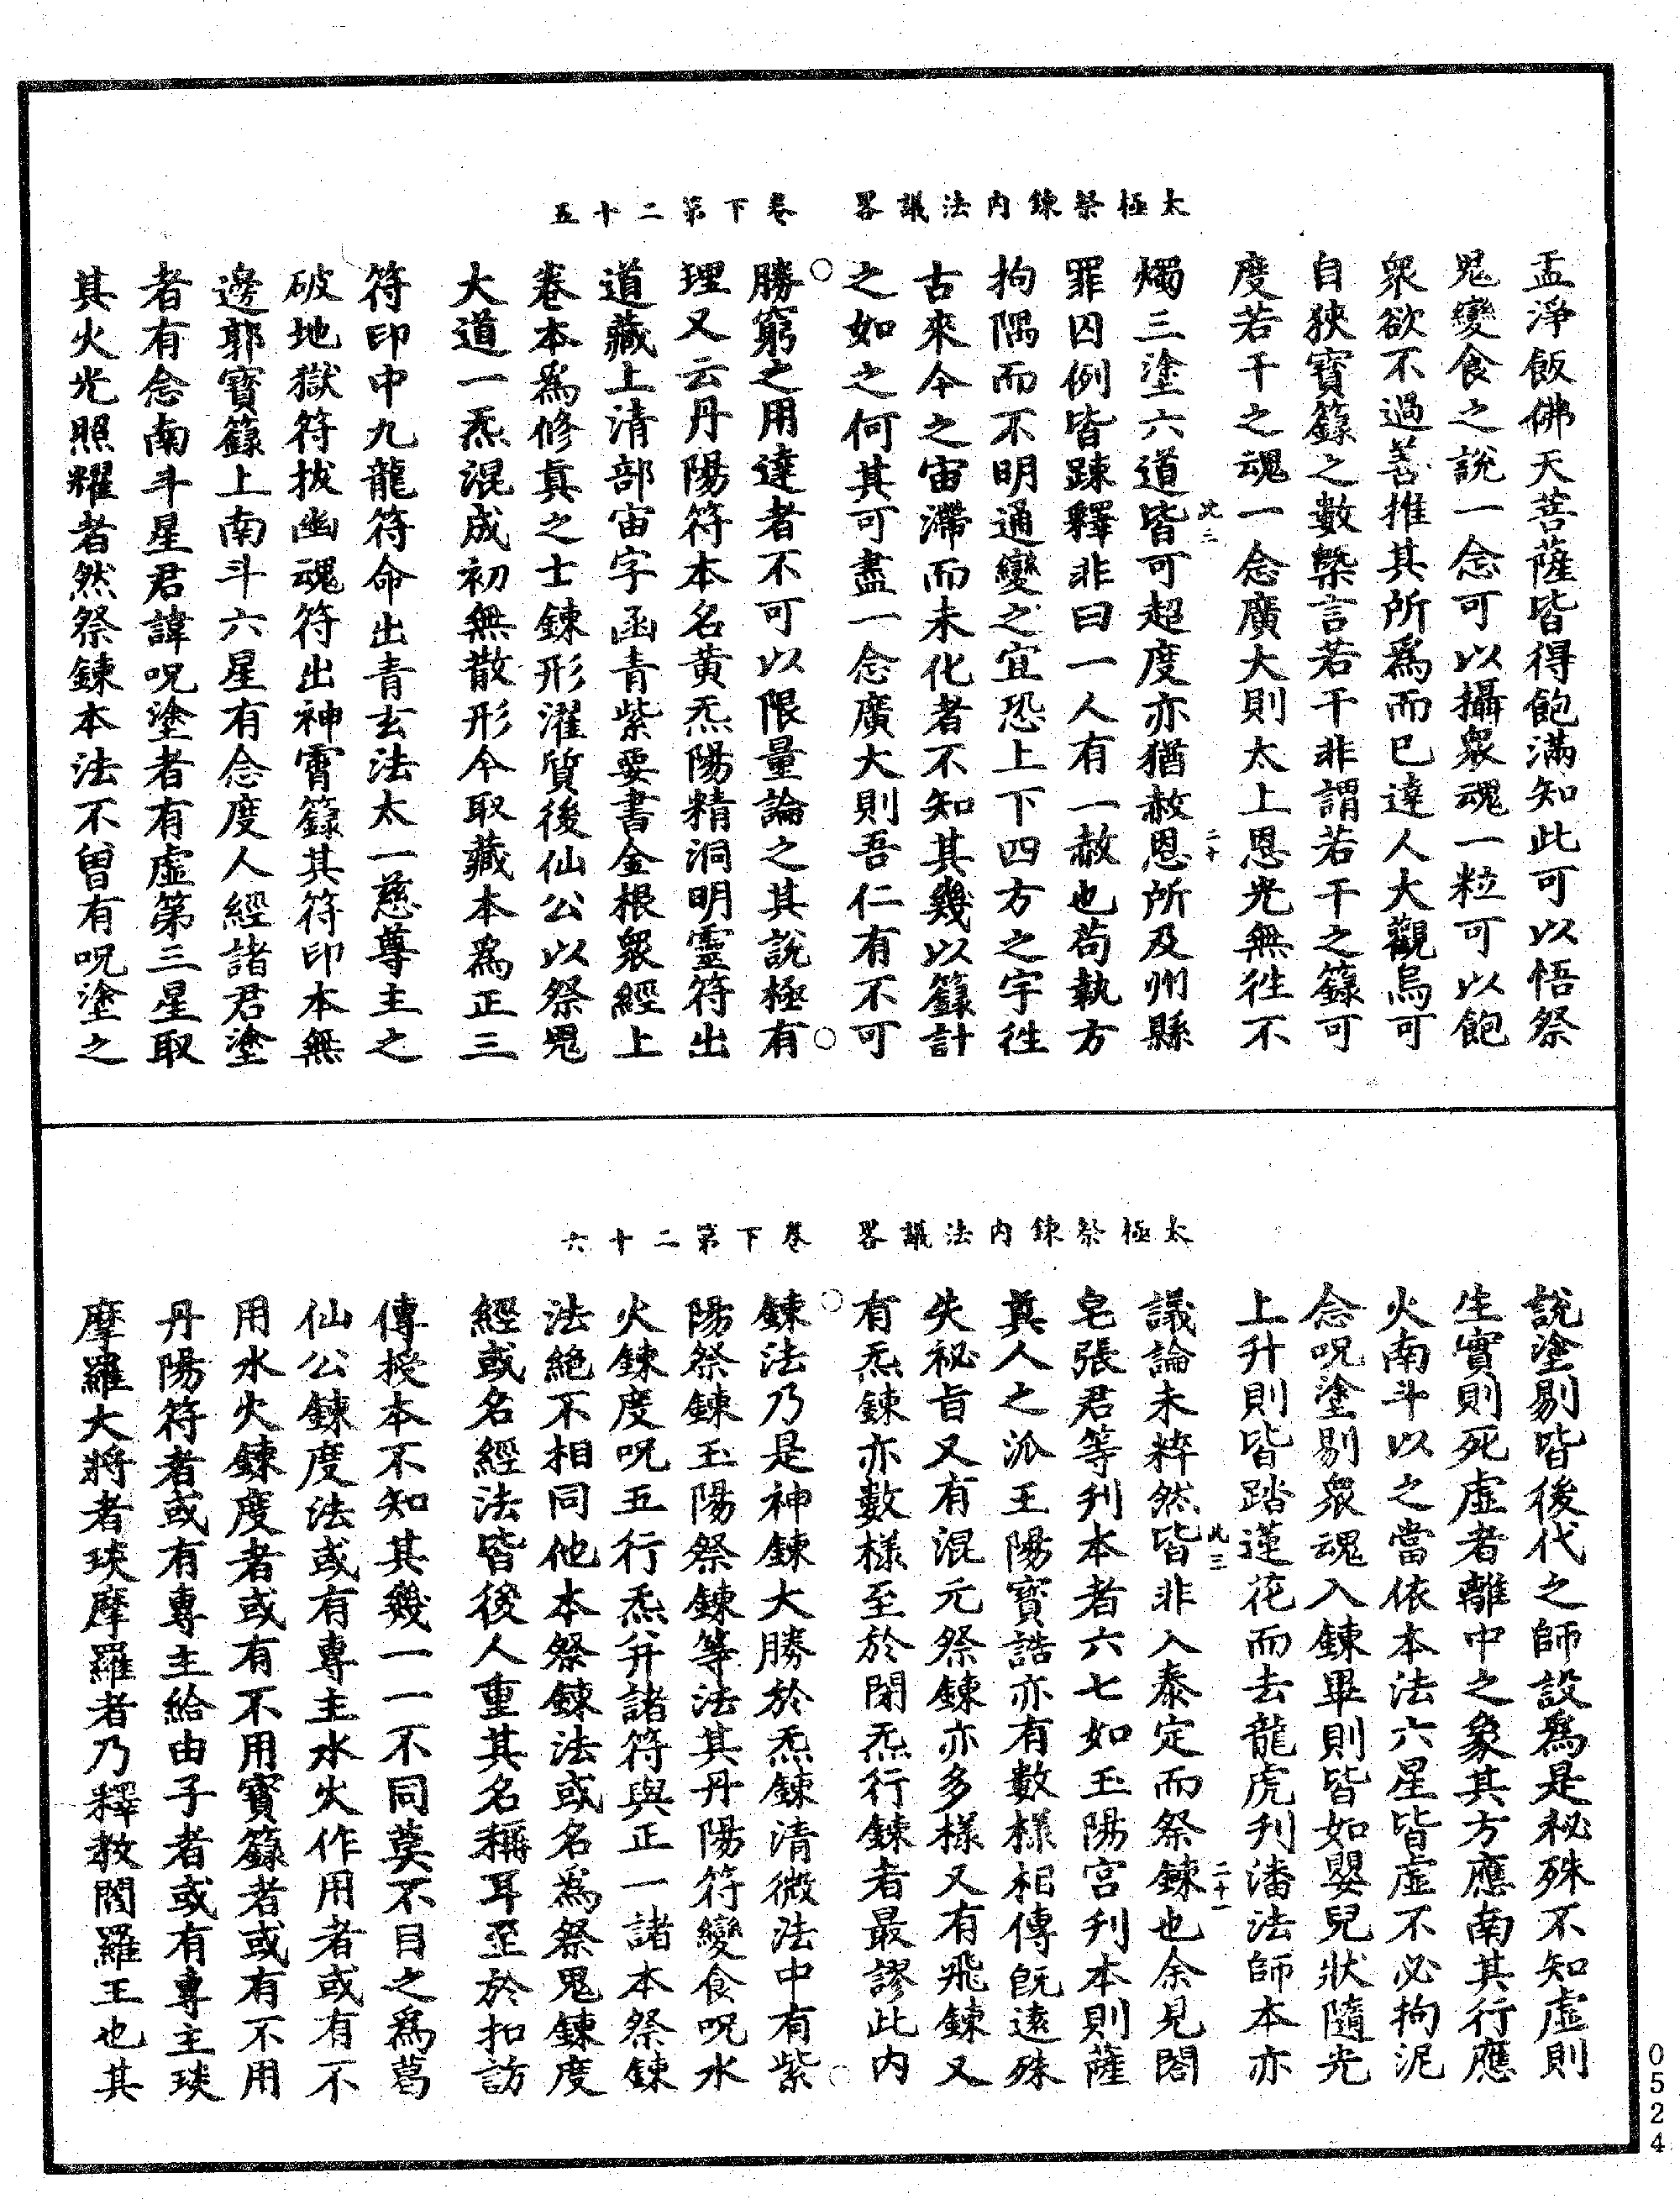 太極祭鍊內法議畧　卷下第二十五
盂淨飯佛天菩薩皆得飽滿知此可以悟祭
鬼變食之說一念可以攝眾魂一粒可以飽
眾欲不過善推其所爲而已達人大觀烏可
自狹寳籙之數槩言若干非謂若干之籙可
度若干之魂一念廣大則太上恩光無徃不
燭三塗六道皆可超度亦猶赦恩所及州縣
此三　二十
罪囚例皆踈釋非曰一人有一赦也苟執方
拘隅而不明通變之宜恐上下四方之宇徃
古來今之宙滯而未化者不知其幾以籙計
之如之何其可盡一念廣大則吾仁有不可
勝窮之用達者不可以限量論之其說極有
理又云丹陽符本名黃炁陽精洞明靈符出
道藏上清部宙字函青紫要書金根眾經上
卷本爲修真之士鍊形濯質後仙公以祭鬼
大道一炁混成初無散形今取藏本爲正三
符印中九龍符命出青玄法太一慈尊主之
破地獄符拔幽魂符出神霄籙其符印本無
邊郭寳籙上南斗六星有念度人經諸君塗
者有念南斗星君諱呪塗者有虛第三星取
其火光照耀者然祭鍊本法不曾有呪塗之
太極祭鍊內法議畧　卷下第二十六
說塗剔皆後代之師設爲是祕殊不知虛則
生實則死虛者離中之象其方應南其行應
火南斗以之當依本法六星皆虛不必拘泥
念呪塗剔眾魂入鍊畢則皆如嬰兒狀隨光
上升則皆踏蓮花而去龍虎刋潘法師本亦
議論未粹然皆非入泰定而祭鍊也余見閤
此三　二十一
皂張君等刋本者六七如玉陽宮刋本則薩
真人之派王陽寳誥亦有數樣相傳旣遠殊
失祕旨又有混元祭鍊亦多樣又有飛鍊又
有炁鍊亦數樣至於閉炁行鍊者最謬此內
鍊法乃是神鍊大勝於炁鍊清微法中有紫
陽祭鍊玉陽祭鍊等法其丹陽符變食呪水
火鍊度呪五行炁并諸符與正一諸本祭鍊
法絶不相同他本祭鍊法或名爲祭鬼鍊度
經或名經法皆後人重其名稱耳至於扣訪
傳授本不知其幾一一不同莫不目之爲葛
仙公鍊度法或有專主水火作用者或有不
用水火鍊度者或有不用寳籙者或有不用
丹陽符者或有專主給由子者或有專主琰
摩羅大將者琰摩羅者乃釋教閻羅王也其
0524